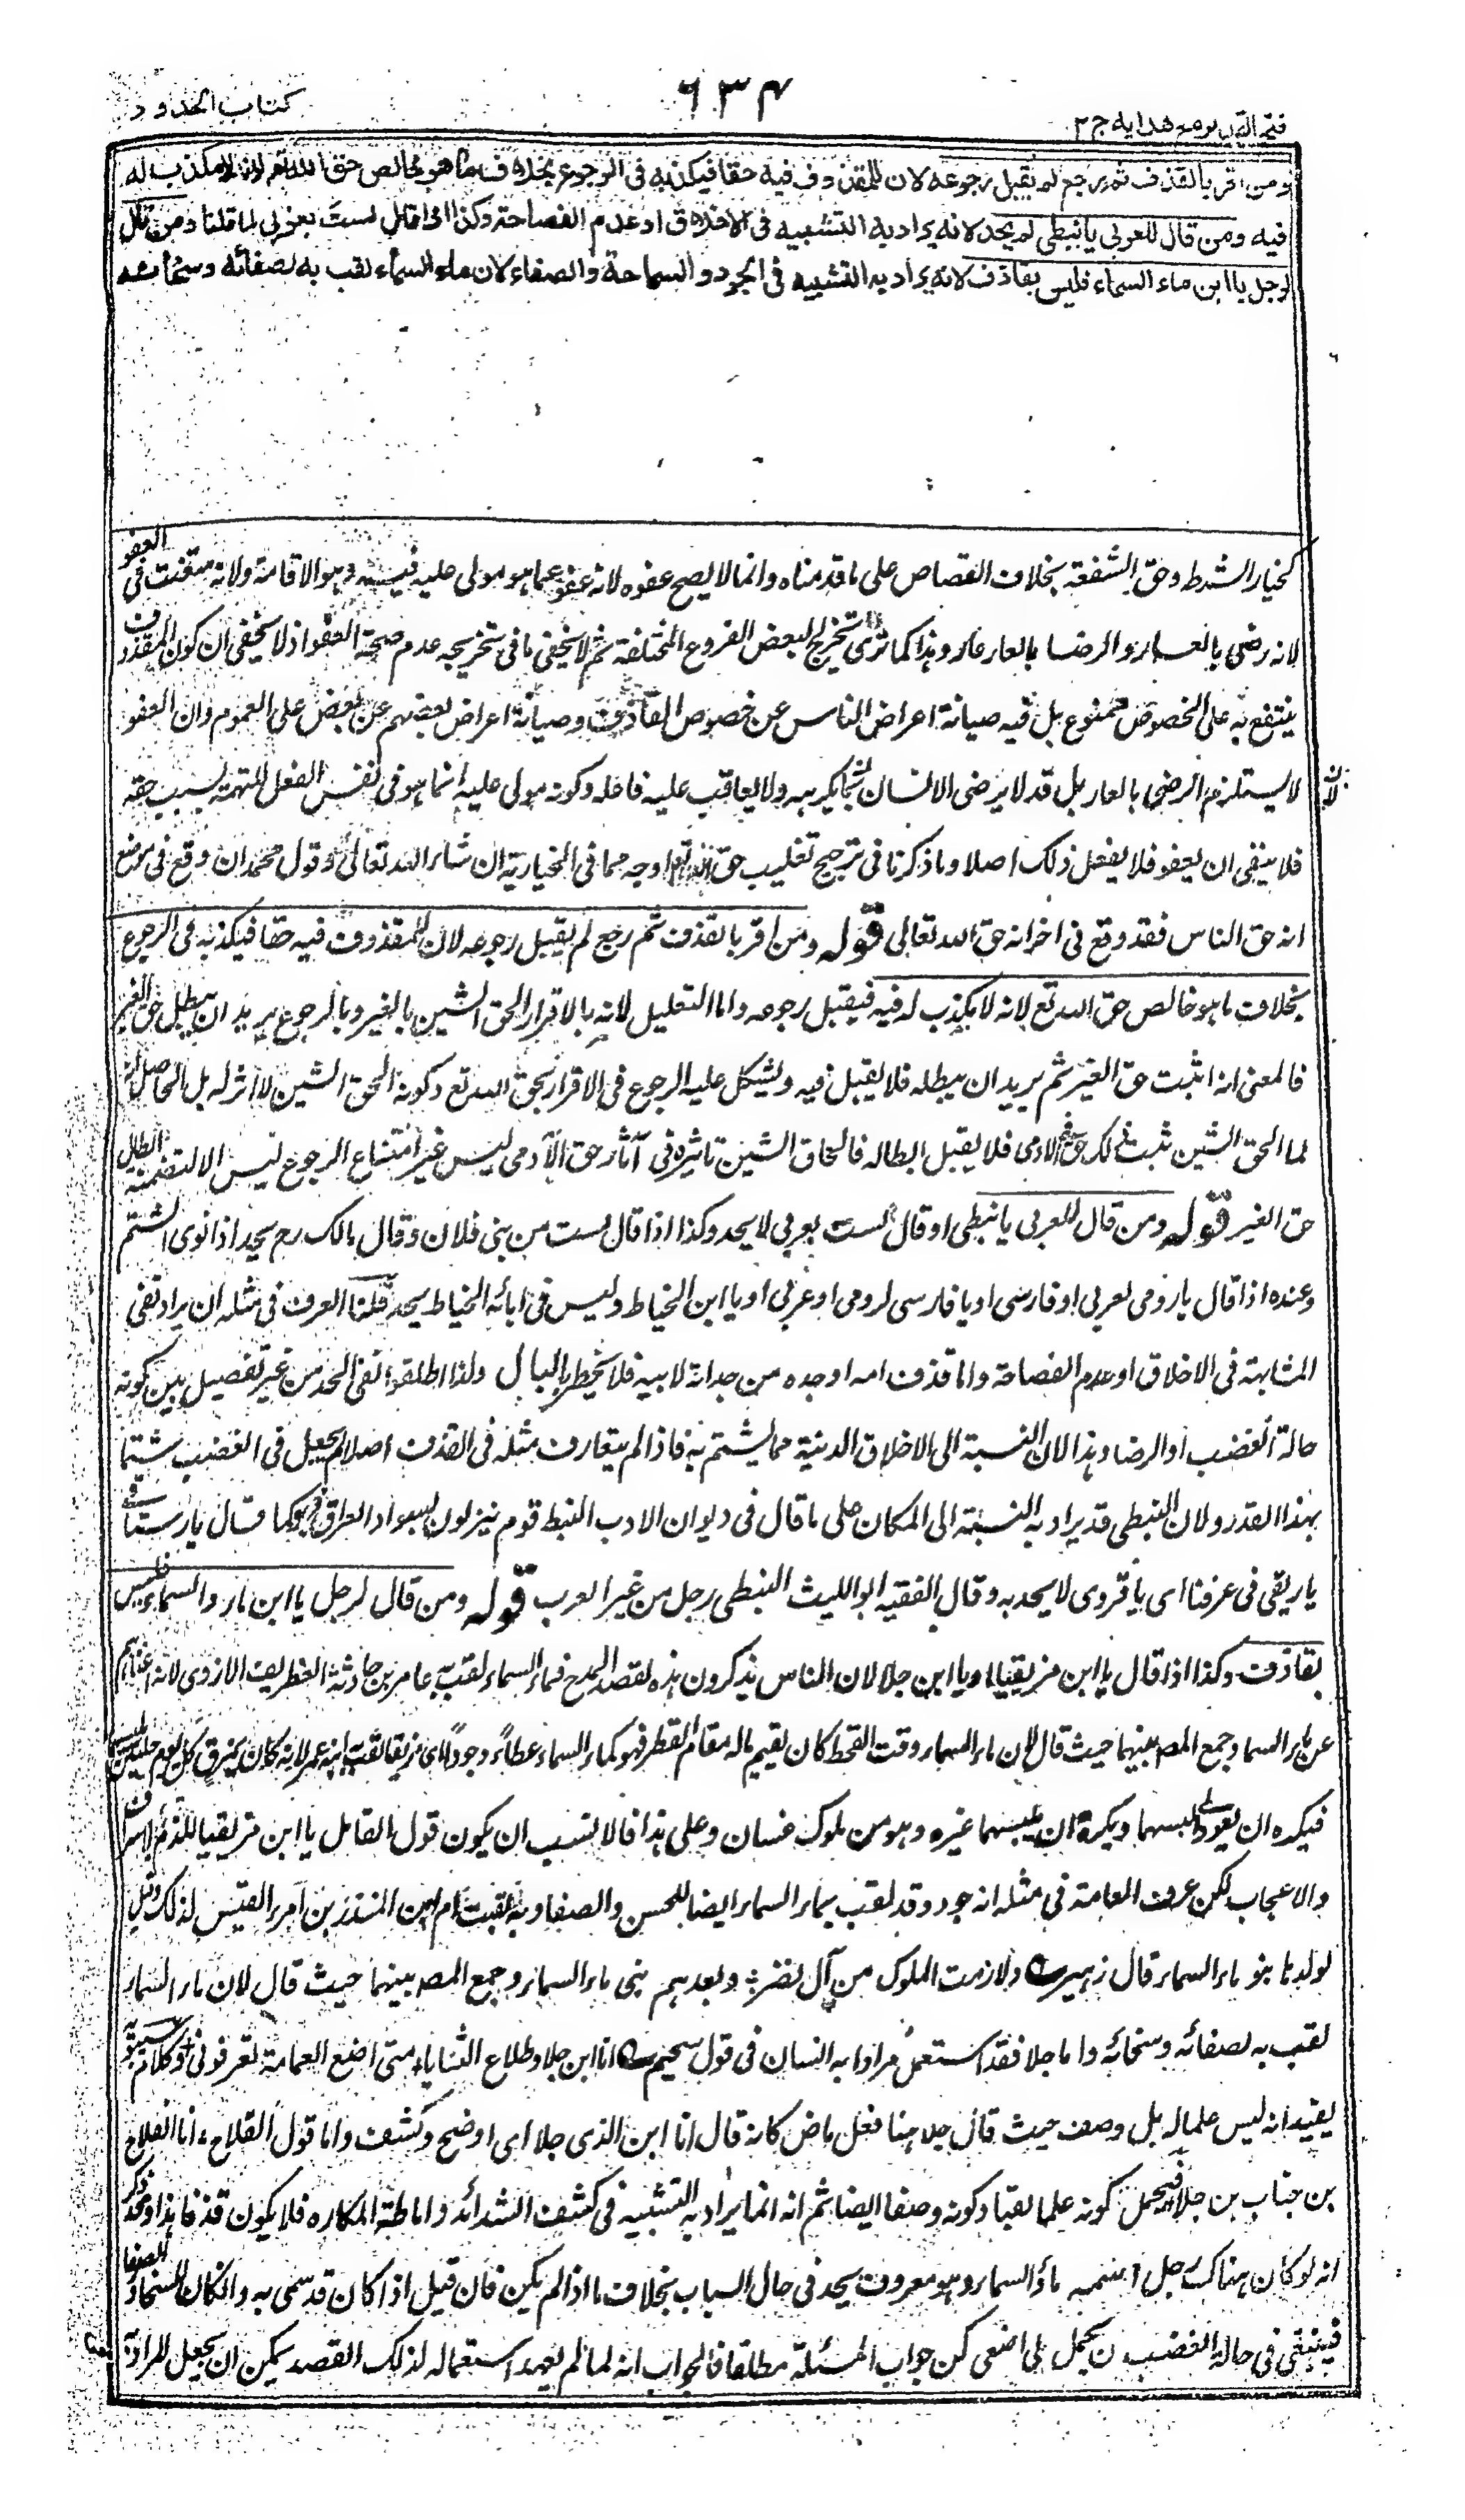 كتاب الحدود
٦٣٤
فتح القدير مع هدايه ج ٢
ومن اقر بالقذف ثم رجع لم يقبل رجوعه لان للمقذوف فيه حقا فيكذبه فى الرجوع بخلاف ما هو خالص حق الله تعم لانه لا مكذب له
فيه ومن قال للعربي يا نبطي لم يحد لانه يراد به التشبيه فى الاخلاق او عدم الفصاحة وكذا اذا قال لست بعربى لما قلنا ومن قال
لرجل يا ابن ماء السماء فليس بقاذف لانه يراد به التشبيه فى الجود والسماحة والصفاء لان ماء السماء لقب به لصفائه وسخائه
كخيار الشرط وحق الشفعة بخلاف القصاص على ما قدمناه وانما لا يصح عفوه لانه عفو عما هو مولى عليه فيه وهو الاقامة ولانه متعنت فى العفو
لانه رضى بالعار والرضا بالعار عار وهذا كما ترى تخريج لبعض الفروع المختلفة ثم لا يخفى ما فى تخريجه عدم صحة العفو اذ لا يخفى ان كون المقذوف
ينتفع به على الخصوص ممنوع بل فيه صيانة اعراض الناس عن خصوص القاذف وصيانة اعراض بعضهم عن بعض على العموم وان العفو
لا يستلزم الرضى بالعار بل قد لا يرضى الانسان بما يكربه ولا يعاقب عليه فاعله وكونه مولى عليه انما هو فى نفس الفعل للتهمة بسبب حقه
فلا ينفى ان يعفو فلا يفعل ذلك اصلا وما ذكرنا فى ترجيح تغليب حق الله تعم اوجه مما فى الخبازية ان شاء الله تعالى وقول محمد ان وقع فى موضع
انه حق الناس فقد وقع فى اخر انه حق الله تعالى قوله ومن اقر بالقذف ثم رجع لم يقبل رجوعه لان للمقذوف فيه حقا فيكذبه فى الرجوع
بخلاف ما هو خالص حق الله تع لانه لا مكذب له فيه فيقبل رجوعه واما التعليل لانه بالاقرار الحق الشين بالغير وبالرجوع يريد ان يبطل حق الغير
فالمعنى انه اثبت حق الغير ثم يريد ان يبطله فلا يقبل فيه ويشكل عليه الرجوع فى الاقرار بحق الله تع وكونه الحق الشين لا اثر له بل الحاصل انه
لما الحق الشين ثبت حق الادمى فلا يقبل ابطاله فالحاق الشين تاثيره فى آثار حق الآدمى ليس غير امتناع الرجوع ليس الا لتضمنه ابطال
حق الغير قوله ومن قال للعربى يا نبطى او قال لست بعربى لا يحد وكذا اذا قال لست من بنى فلان وقال مالك رح يحد اذا نوى الشتم
وعنده اذا قال يا رومى لعربى او فارسى او يا فارسى لرومى او عربى او يا ابن الخياط وليس فى ابائه الخياط يحد قلنا العرف فى مثله ان يراد نفى
المشابهة فى الاخلاق او عدم الفصاحة واما قذف امه او جده من جداته لابيه فلا يخطر بالبال ولذا اطلقوا نفى الحد من غير تفصيل بين كونه
حالة الغضب او الرضا وهذا لان النسبة الى الاخلاق الدنية مما يشتم به فاذا لم يتعارف مثله فى القذف اصلا يجعل فى الغضب شتما
بهذا القدر ولان النبطى قد يراد به النسبة الى المكان على ما قال فى ديوان الادب النبط قوم ينزلون بسواد العراق فهو كما قال يا رستاقى
يا ريفى فى عرفنا اى يا قروى لا يحد به وقال الفقيه ابو الليث النبطى رجل من غير العرب قوله ومن قال لرجل يا ابن ماء السماء فليس
بقاذف وكذا اذا قال يا ابن مزيقيا او يا ابن جلا لان الناس يذكرون هذه لقصد المدح فماء السماء لقب به عامر بن حارثة الغطريف الازدى لانه اغناهم
عن ماء السما وجمع المصـ بينهما حيث قال لان ماء السماء وقت القحط كان يقيم ماله مقام القطر فهو كماء السماء عطاءً وجوداً اى مزيقا لقب به ابنه عمر لانه كان يمزق كل يوم حلتين يلبسهما
فيكره ان يعود الى لبسهما ويكره ان يلبسهما غيره وهو من ملوك غسان وعلى هذا فالانسب ان يكون قول القائل يا ابن مزيقيا للذم بالسرف
والاعجاب لكن عرف العامة فى مثله انه جود وقد لقب بماء السماء ايضا للحسن والصفا وبه لقبت ام المنذر بن امرء القيس لذلك وقيل
لولدها بنو ماء السماء قال زهير ولازمت الملوك من آل نصر ÷ وبعدهم بنى ماء السماء وجمع المصـ بينهما حيث قال لان ماء السماء
لقب به لصفائه وسخائه واما جلا فقد استعمل مرادا به انسان فى قول سحيم انا ابن جلا وطلاع الثنايا، متى اضع العمامة تعرفونى وكلام سيبويه
يفيد انه ليس علما له بل وصف حيث قال جلا هنا فعل ماض كانه قال انا ابن الذى جلا اى اوضح وكشف واما قول القلاخ، انا القلاخ
بن جناب بن جلا فيحتمل كونه علما لقبا وكونه وصفا ايضا ثم انه انما يراد به التشبيه فى كشف الشدائد واماطة المكاره فلا يكون قذفا هذا وقد ذكر
انه لو كان هناك رجل اسمه ماء السماء وهو معروف يحد فى حال السباب بخلاف ما اذا لم يكن فان قيل اذا كان قد سمى به وان كان للسخاء والصفا
فينبغى فى حالة الغضب ان يحمل على النفى لكن جواب المسئلة مطلقا فالجواب انه لما لم يعهد استعماله لذلك القصد يمكن ان يجعل المراد به